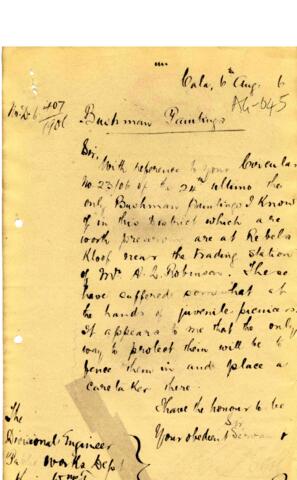 Cala, 6th Aug. 6
AG-045
No. D. 6 407/1906
Bushman Paintings
Sir,
With reference to your Circular
No. 23/06 of the 24th ultimo the
only Bushman Paintings I know
of in this District which are
worth preserving are at Rebels
Kloof near the trading station
of Mr. A. L. Robinson. These
have suffered somewhat at
the hands of juvenile picnicers.
It appears to me that the only
way to protect them will be to
fence them in and place a
caretaker there.
I have the honour to be
Sir
Your obedient Servant
The
Divisional Engineer
Public Works Dept